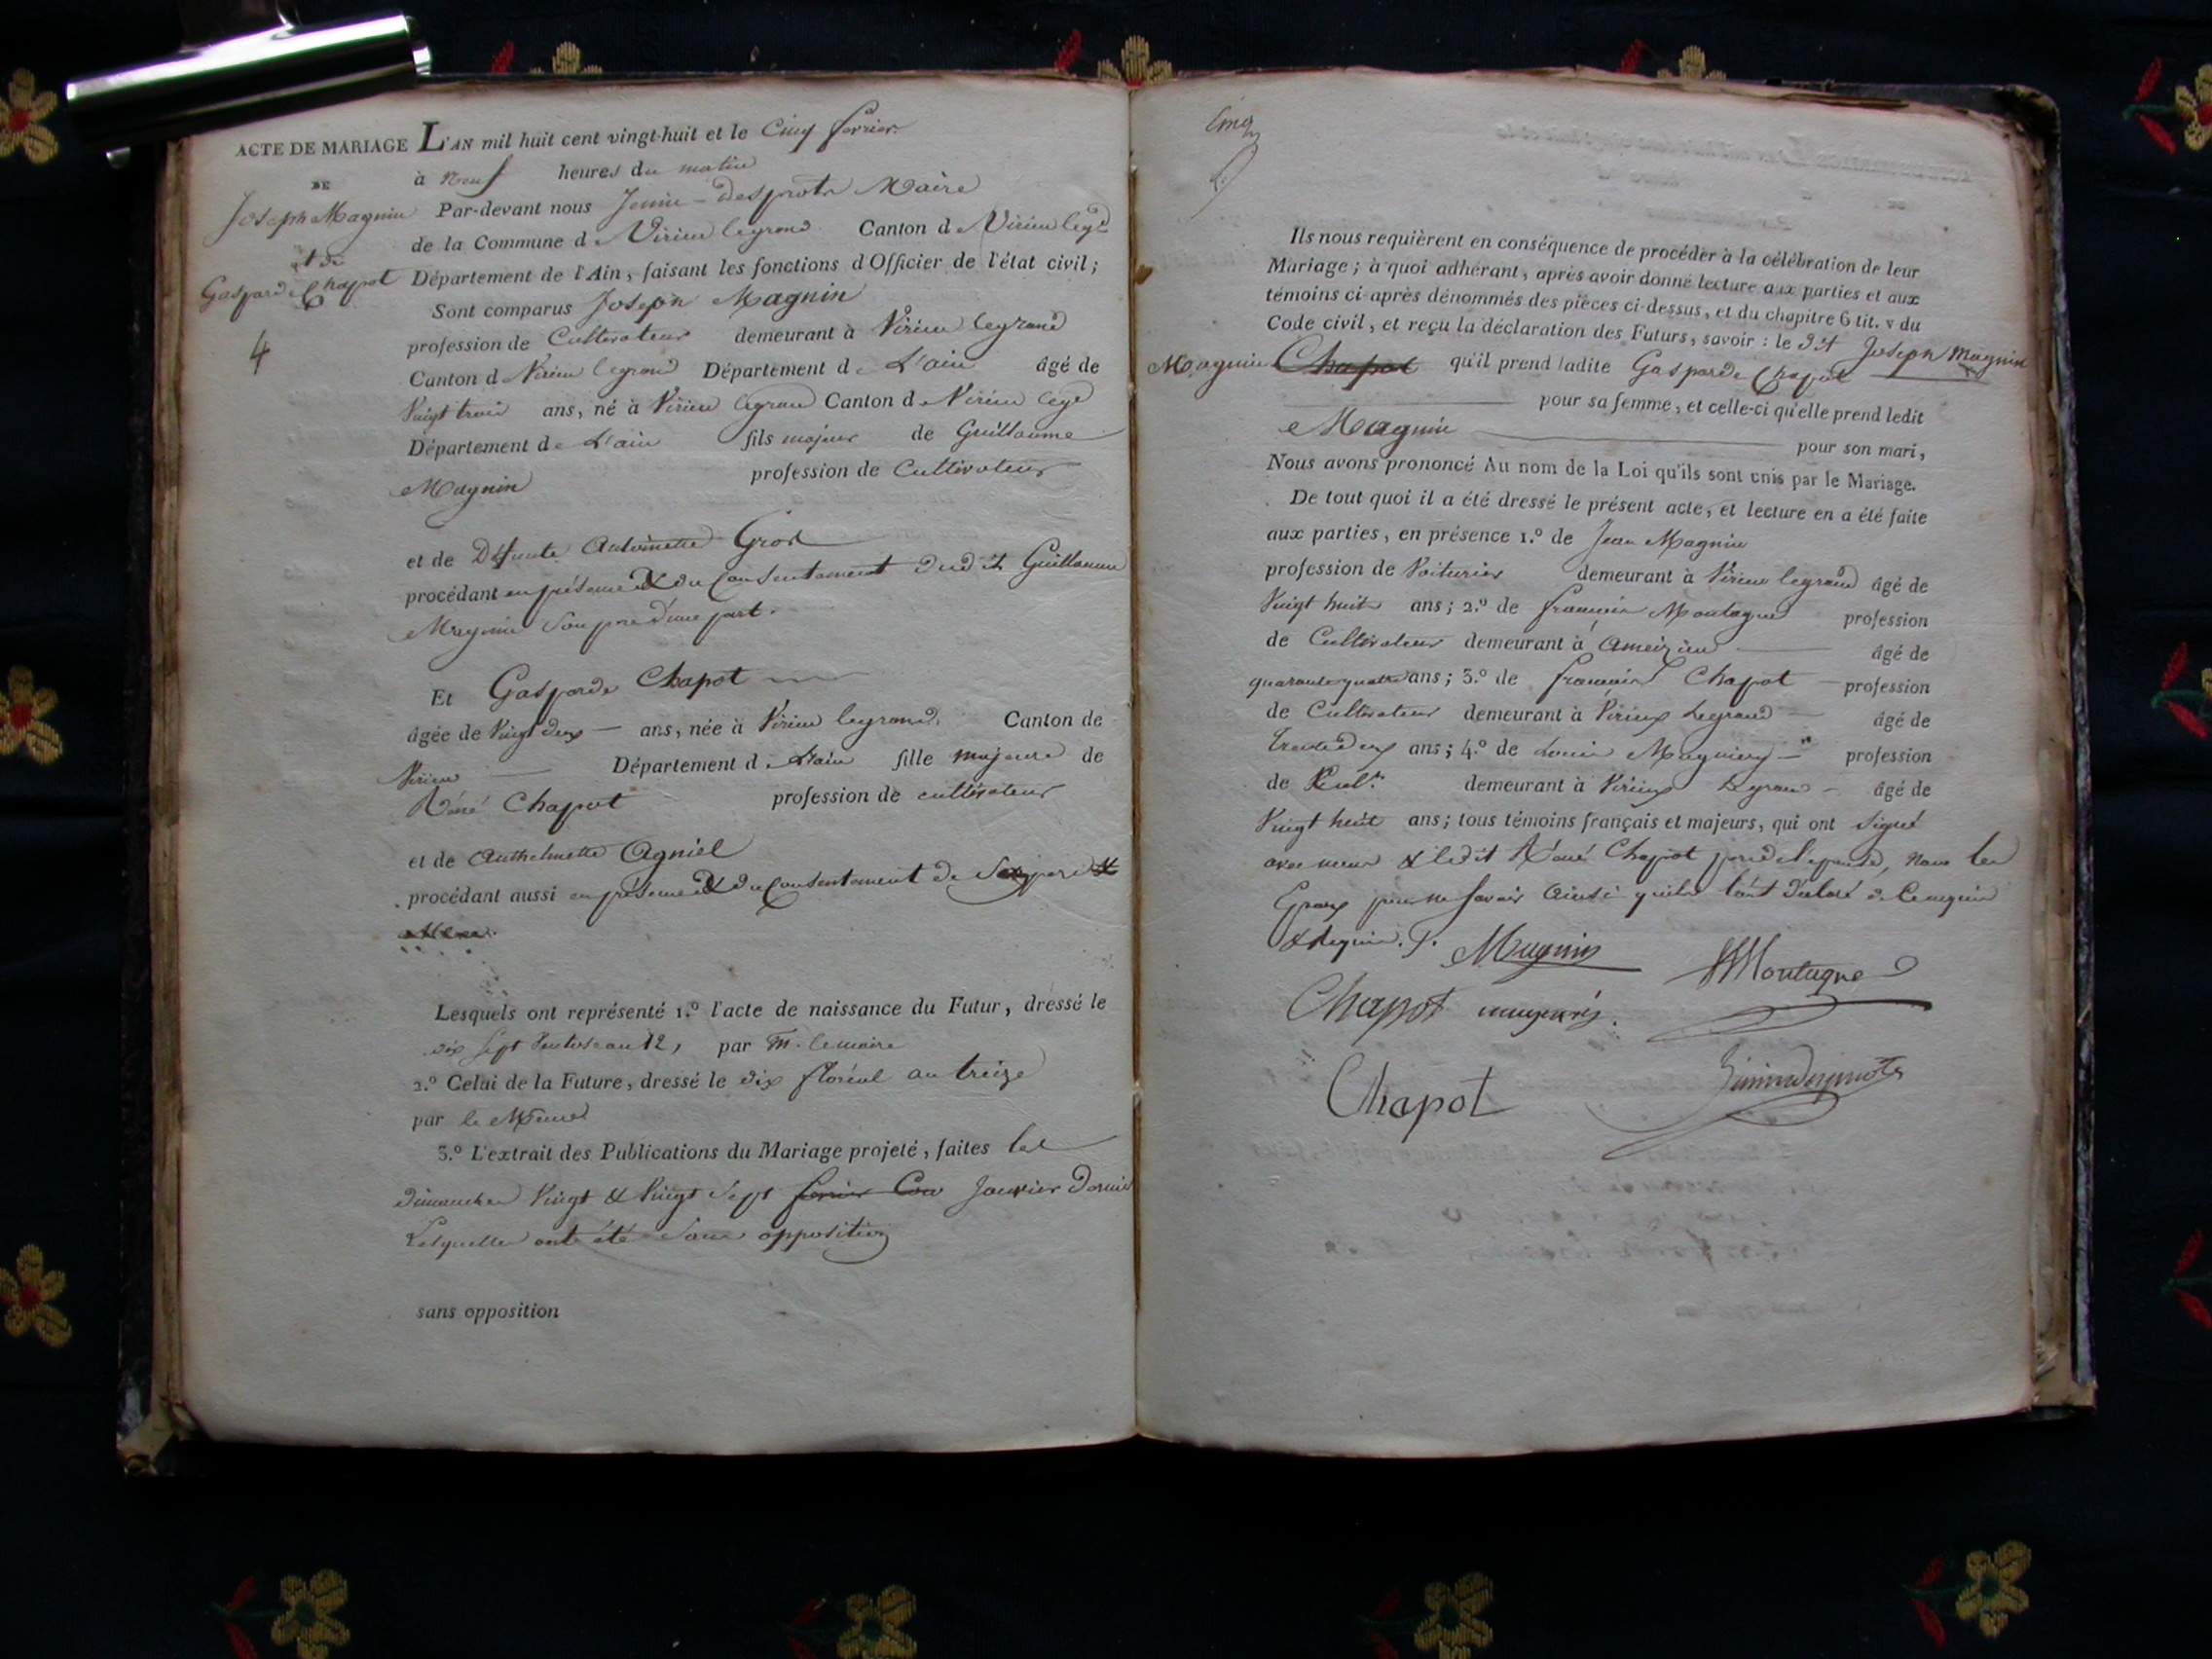 ACTE DE MARIAGE L'AN mil huit cent vingt-huit et le Cinq fevrier
DE
à neuf heures du matin
Joseph Magnin
et de
Gasparde Chapot
4
Par-devant nous Jenin-desprots Maire
de la Commune de Virieu legrand Canton de Virieu legd
Département de l'Ain, faisant les fonctions d'Officier de l'état civil;
Sont comparus Joseph Magnin
profession de Cultivateur demeurant à Virieu legrand
Canton de Virieu legrand Département de L'ain âgé de
Vingt trois ans, né à Virieu legrand Canton de Virieu legd
Département de L'ain fils majeur de Guillaume
Magnin profession de Cultivateur
et de Défunte Antoinette Gros
procédant en présence & du Consentement dudit Guillaume
Magnin Son pere d'une part.
Et Gasparde Chapot
âgée de Vingt deux ans, née à Virieu legrand, Canton de
Virieu Département de L'ain fille majeure de
Chapot profession de cultivateur
et de Anthelmette Agniel
procédant aussi en présence & du Consentement de Ses pere &
Mere.
Lesquels ont représenté 1.º l'acte de naissance du Futur, dressé le
dix Sept Ventose an 12, par M. le maire
2.º Celui de la Future, dressé le dix floréal an treize
par le Même
3.º L'extrait des Publications du Mariage projeté, faites les
dimanches Vingt & Vingt Sept fevrier Janvier Dernier
Lesquelles ont été Sans opposition
sans opposition
Cinq
Ils nous requièrent en conséquence de procéder à la célébration de leur
Mariage; à quoi adhérant, après avoir donné lecture aux parties et aux
témoins ci-après dénommés des pièces ci-dessus, et du chapitre 6 tit. v du
Code civil, et reçu la déclaration des Futurs, savoir: le dit Joseph Magnin
Magnin Chapot qu'il prend ladite Gasparde Chapot
pour sa femme, et celle-ci qu'elle prend ledit
Magnin pour son mari,
Nous avons prononcé Au nom de la Loi qu'ils sont unis par le Mariage.
De tout quoi il a été dressé le présent acte, et lecture en a été faite
aux parties, en présence 1.º de Jean Magnin
profession de Voiturier demeurant à Virieu legrand âgé de
Vingt huit ans; 2.º de françois Montagne profession
de Cultivateur demeurant à Ameizieu âgé de
quarante quatre ans; 3.º de françois Chapot profession
de Cultivateur demeurant à Virieu Legrand âgé de
trente deux ans; 4.º de Louis profession
de Cult. demeurant à Virieu Legrand âgé de
Vingt huit ans; tous témoins français et majeurs, qui ont Signé
avec nous & ledit Chapot pere de l'epouse, Non les
Epoux pour ne Savoir Ainsi qu'ils l'ont déclaré de Ce enquis
& requis. Magnin Montagne
Chapot
Chapot Jenin desprots